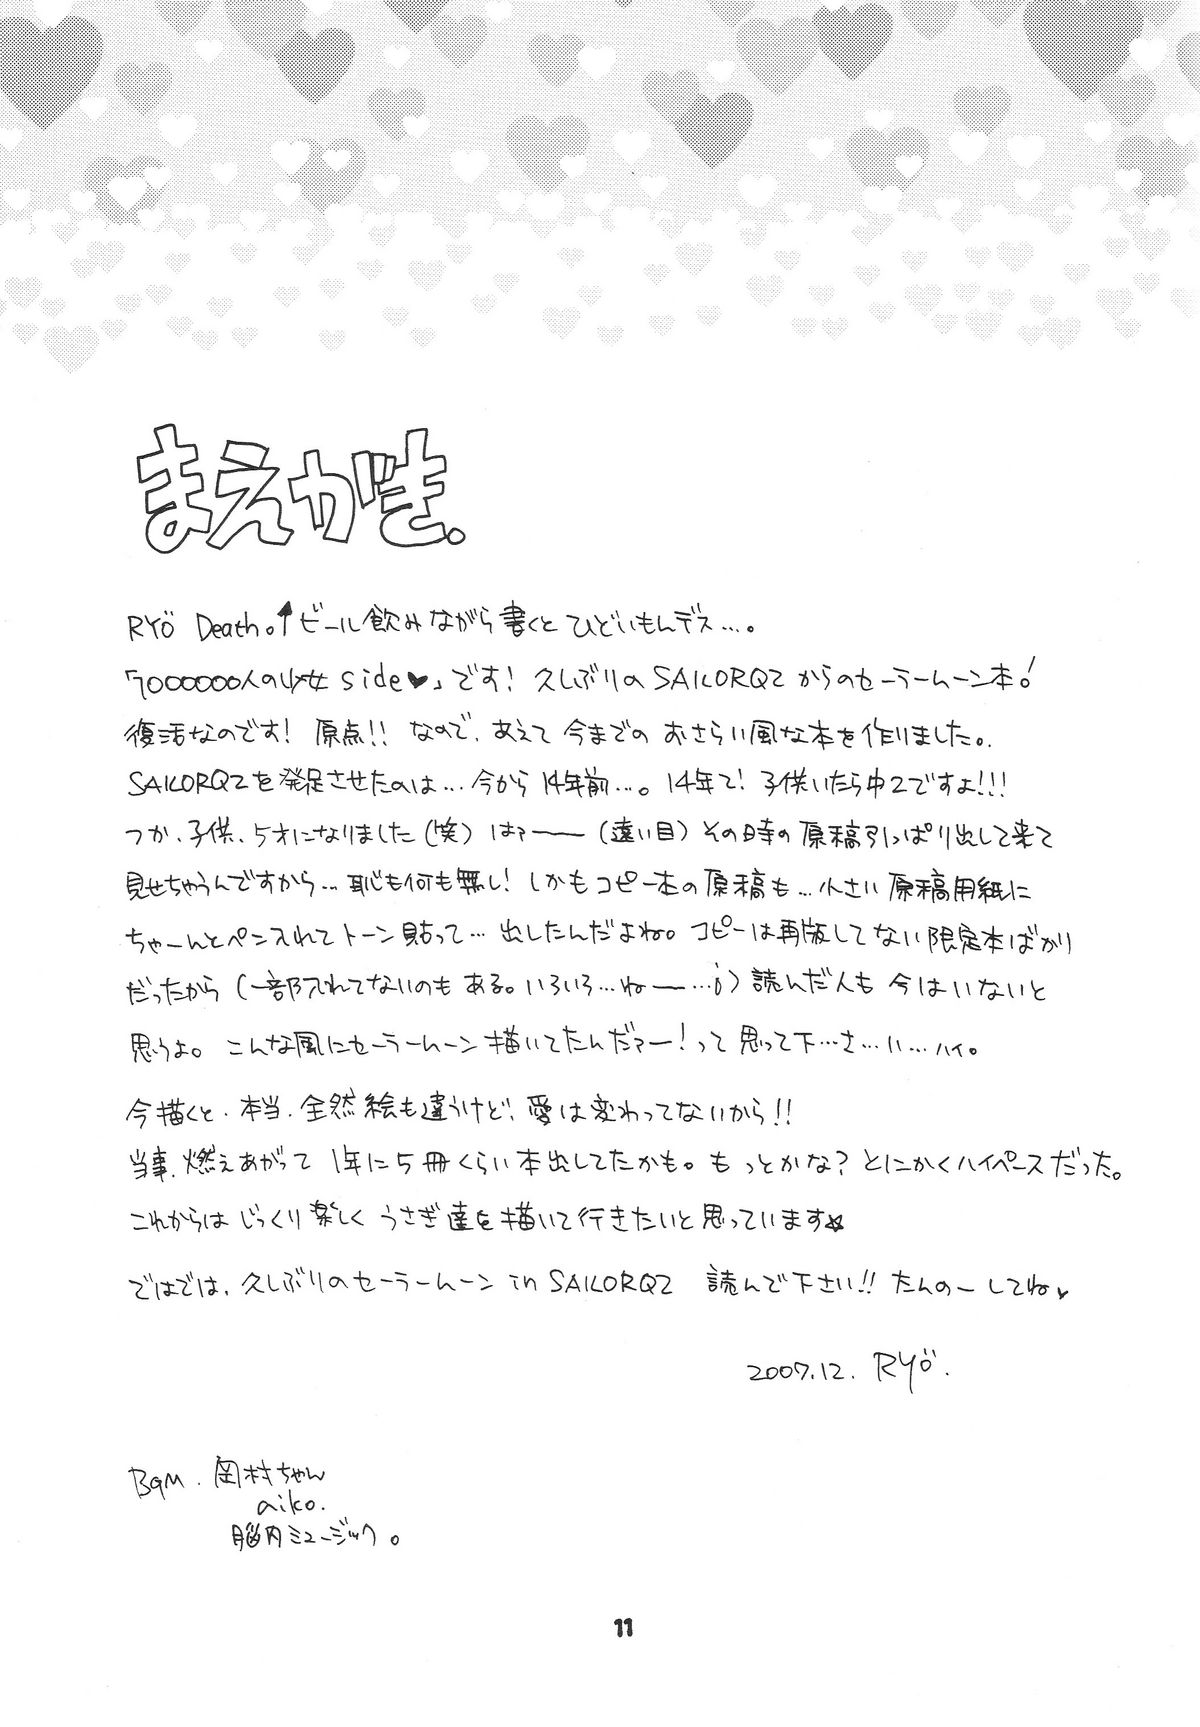 まえがき.
RYÖ Death。↑ビール飲みながら書くとひどいもんデス…。
「7000000人の少女side♥」です！久しぶりのSAILORQ2からのセーラームーン本！
復活なのです！原点!! なので、あえて今までのおさらい風な本を作りました。
SAILORQ2を発足させたのは…今から14年前…。14年て！子供いたら中2ですよ!!!
つか、子供、5才になりました（笑）はァーー（遠い目）その時の原稿引っぱり出して来て
見せちゃうんですから…恥も何も無し！しかもコピー本の原稿も…小さい原稿用紙に
ちゃーんとペン入れてトーン貼って…出したんだよね。コピーは再版してない限定本ばかり
だったから（一部入れてないのもある。いろいろ…ねー…）読んだ人も今はいないと
思うよ。こんな風にセーラームーン描いてたんだァー！って思って下…さ…い…ハイ。
今描くと、本当、全然絵も違うけど、愛は変わってないから!!
当事、燃えあがって1年に5冊くらい本出してたかも。もっとかな？とにかくハイペースだった。
これからはじっくり楽しくうさぎ達を描いて行きたいと思っています☆
ではでは、久しぶりのセーラームーン in SAILORQ2 読んで下さい!! たんのーしてね♥
2007.12. RYÖ.
BGM. 岡村ちゃん
aiko.
脳内ミュージック。
11